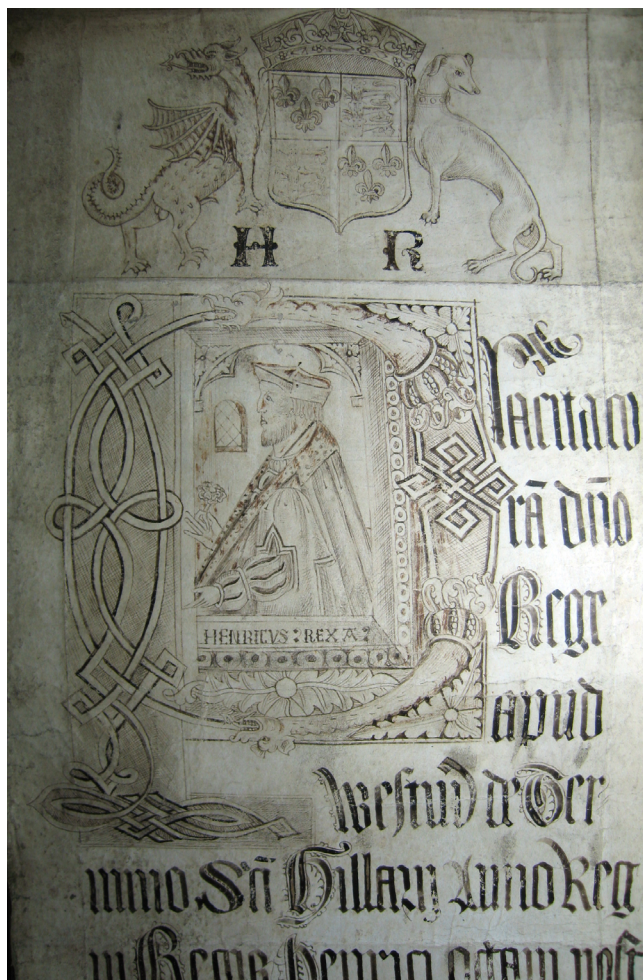 H R
HENRICVS : REX A :
Placita co
rā dn̄o
Rege
apud
Westm̄ de Ter
mino Sc̄i Hillarij Anno Reg
ni Regis Henrici octavi